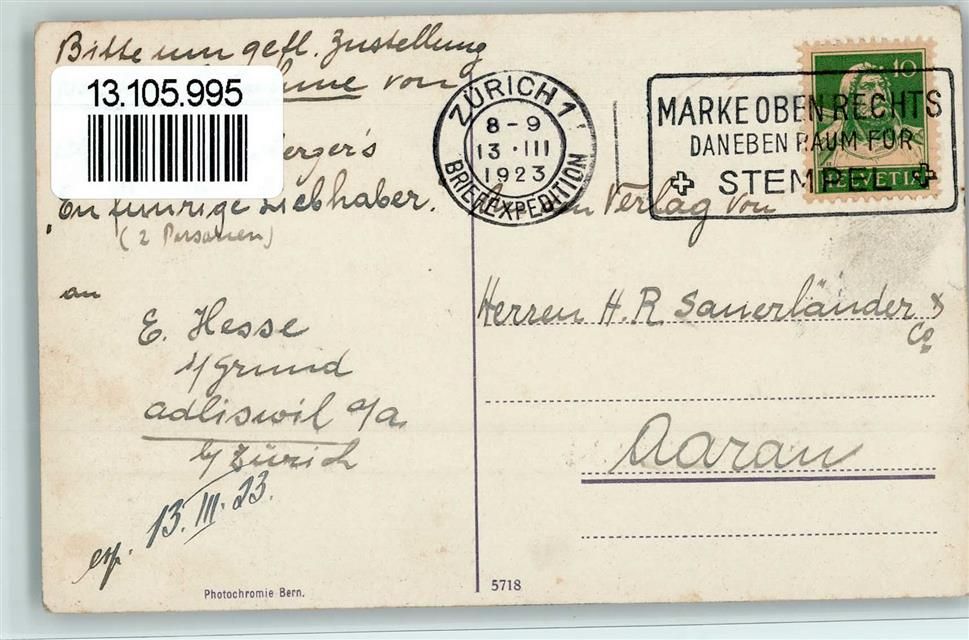 Bitte um gefl. Zustellung
von
13.105.995
erger's
En füürige Liebhaber.
(2 Personen)
an
E. Hesse
i/Grund
Adliswil a/A.
b/Zürich
exp. 13. III. 23.
Photochromie Bern.
ZÜRICH 1
8-9
13 · III
1923
BRIEFEXPEDITION
MARKE OBEN RECHTS
DANEBEN RAUM FÜR
STEMPEL
10
HELVETIA
Verlag von
Herren H. R. Sauerländer &
Co
Aarau
5718